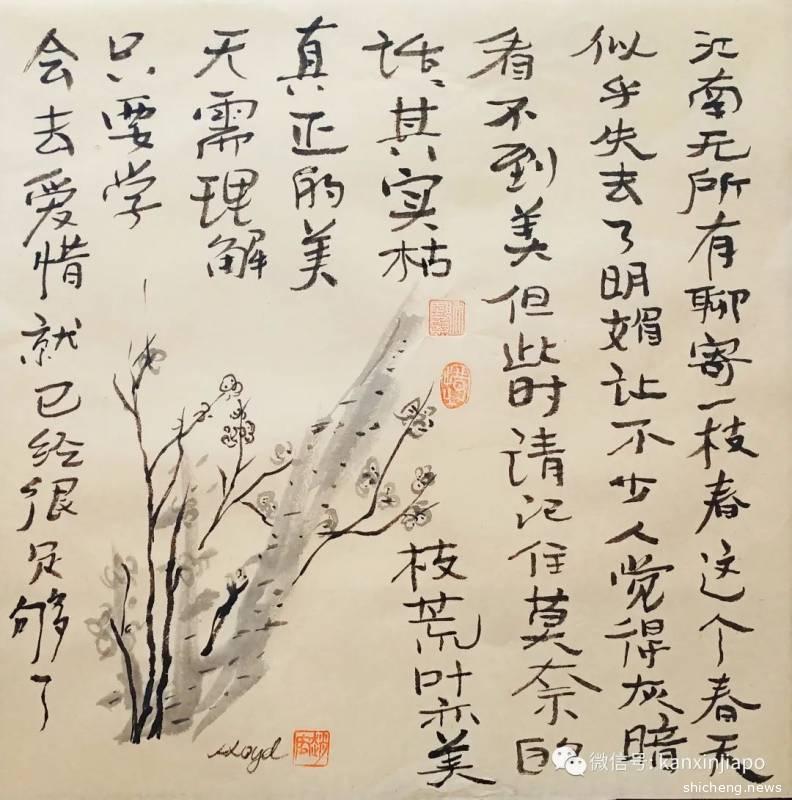 江南无所有聊寄一枝春这个春天
似乎失去了明媚让不少人觉得灰暗
看不到美但此时请记住莫奈的
话其实枯
枝荒叶亦美
真正的美
无需理解
只要学
会去爱惜就已经很足够了
Lloyd
微信号: kanxinjiapo
shicheng.news